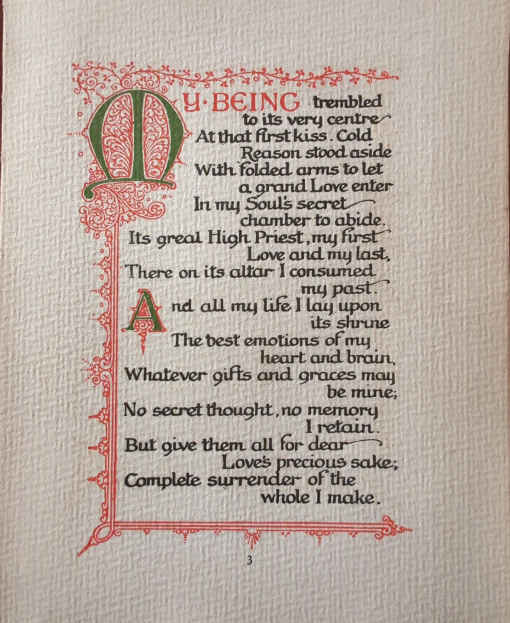 MY · BEING trembled
to its very centre
At that first kiss. Cold
Reason stood aside
With folded arms to let
a grand Love enter
In my Soul's secret
chamber to abide.
Its great High Priest, my first
Love and my last,
There on its altar I consumed
my past.
And all my life I lay upon
its shrine
The best emotions of my
heart and brain,
Whatever gifts and graces may
be mine;
No secret thought, no memory
I retain.
But give them all for dear
Love's precious sake;
Complete surrender of the
whole I make.
3